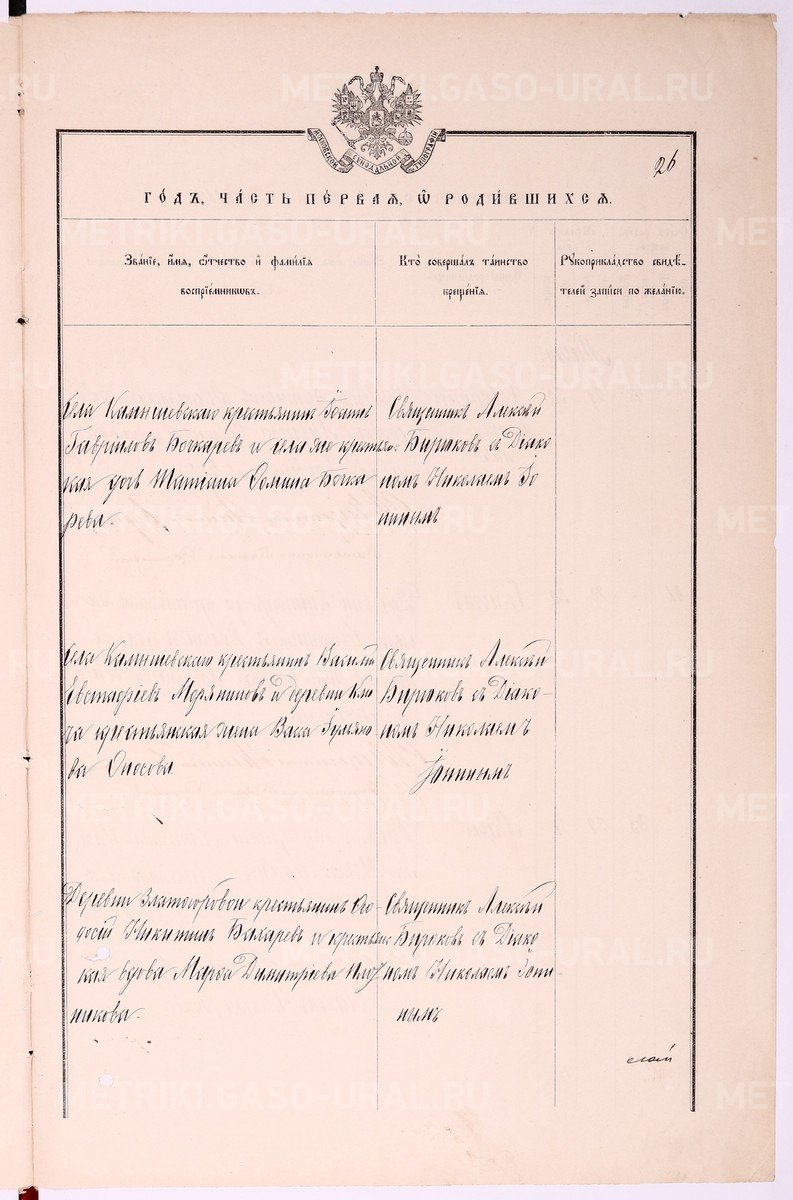 METRIKI.GASO-URAL.RU
МОСКОВСКОЙ СѴНОДАЛЬНОЙ ТИПОГРАФІИ
26
ГО́ДЪ, ЧА́СТЬ ПЕ́РВАЯ, Ѽ РОДИ́ВШИХСЯ.
Зва́нїе, и҆́мя, ѻ҆́тчество и҆ фами́лїя
воспрїе́мникѡвъ.
Кто̀ соверша́лъ та́инство
креще́нїя.
Рꙋкоприкла́дство свидѣ́-
телей за́писи по жела́нїю.
Села Камышевскаго крестьянинъ Іоаннъ
Гавріиловъ Бочкаревъ и села того же крестьян-
ская дочь Татіана Ѳомина Бочка
рева.
Священникъ Алексѣй
Бирюковъ съ Діако
номъ Николаемъ Іо
нинымъ
Села Камышевскаго крестьянинъ Василій
Евстафіевъ Мерзляковъ и деревни
крестьянская жена Васса Гурьяно
ва
Священникъ Алексѣй
Бирюковъ съ Діако-
номъ Николаемъ
Іонинымъ
Деревни Златогоровой крестьянинъ Ѳео-
досій Никитинъ Бахаревъ и крестьян
ская вдова Марѳа Димитріева Плу
никова.
Священникъ Алексѣй
Бирюковъ съ Діако
номъ Николаемъ Іони
нымъ